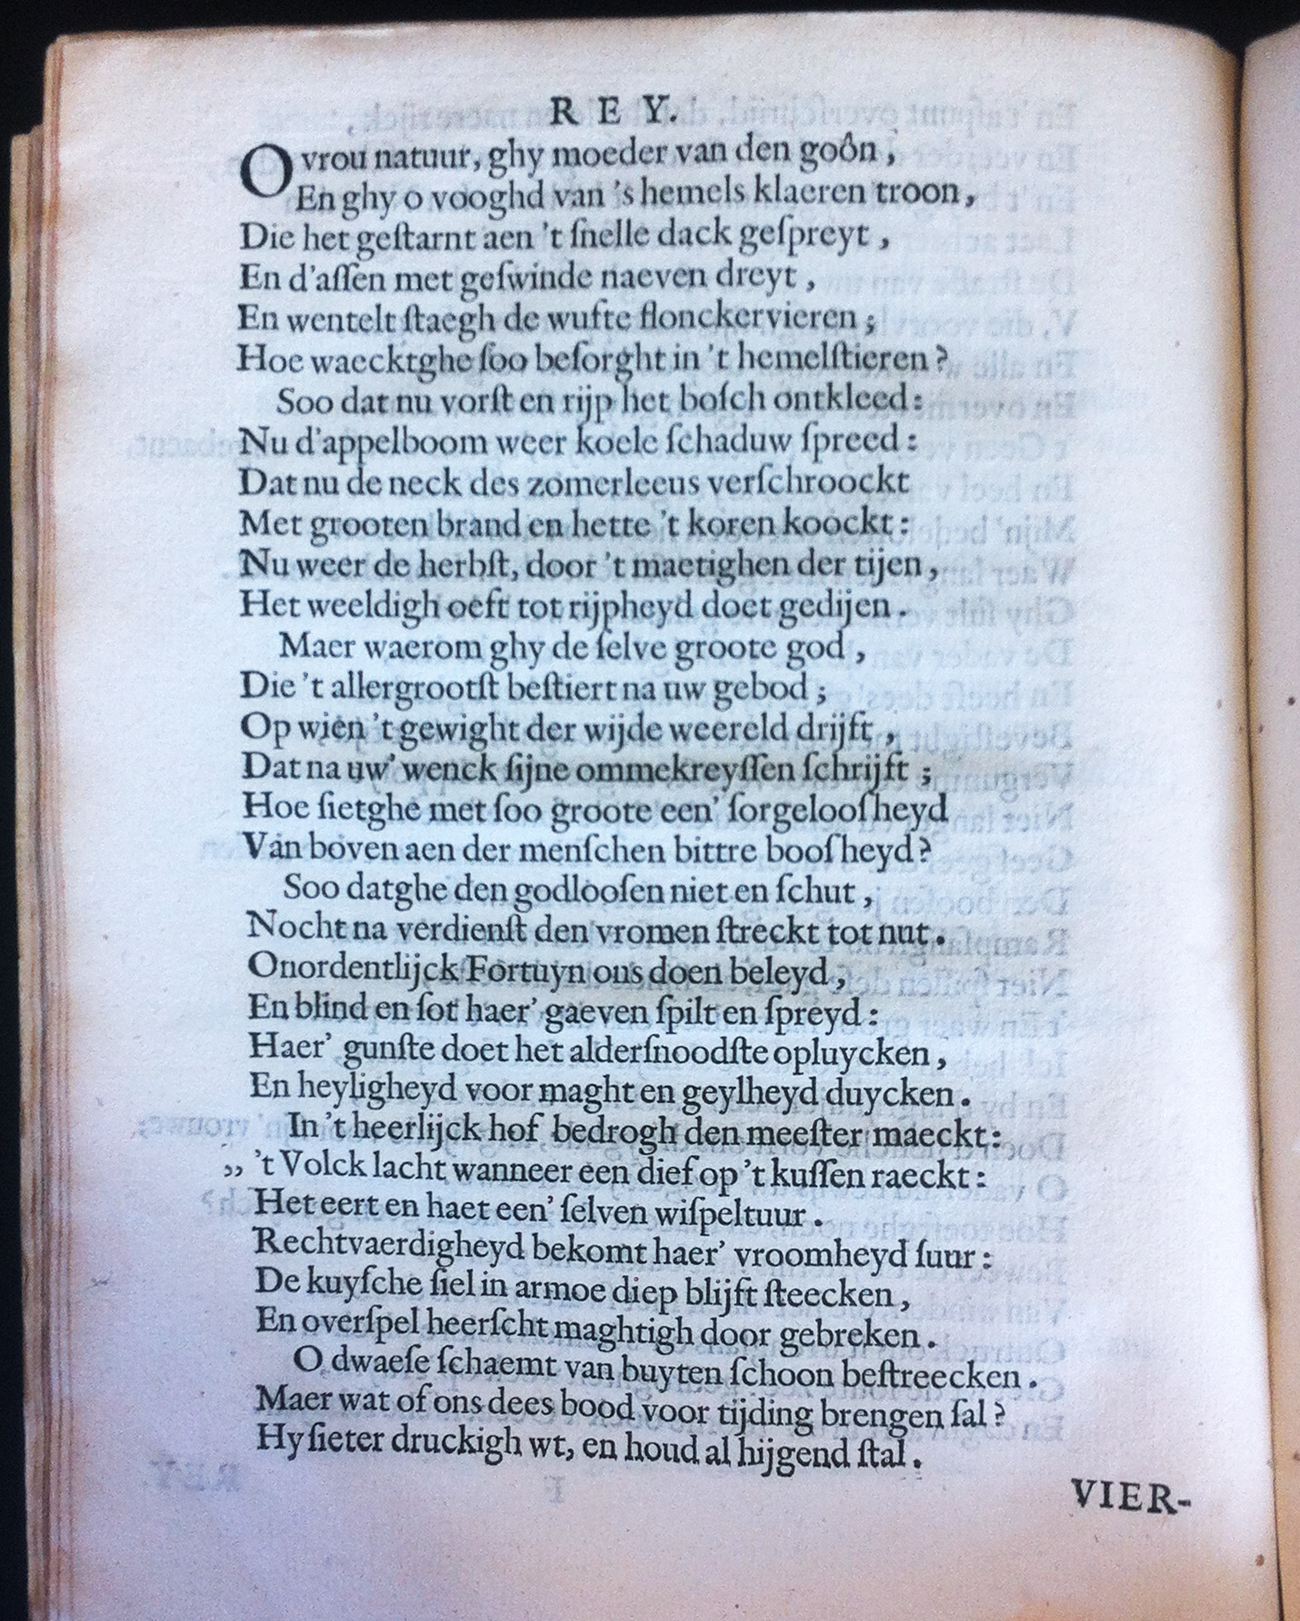 REY.
O vrou natuur, ghy moeder van den goôn,
En ghy o vooghd van 's hemels klaeren troon,
Die het geſtarnt aen 't ſnelle dack geſpreyt,
En d'aſſen met geſwinde naeven dreyt,
En wentelt ſtaegh de wufte flonckervieren;
Hoe waecktghe ſoo beſorght in 't hemelſtieren?
Soo dat nu vorſt en rijp het boſch ontkleed:
Nu d'appelboom weer koele ſchaduw ſpreed:
Dat nu de neck des zomerleeus verſchroockt
Met grooten brand en hette 't koren koockt:
Nu weer de herbſt, door 't maetighen der tijen,
Het weeldigh oeft tot rijpheyd doet gedijen.
Maer waerom ghy de ſelve groote god,
Die 't allergrootſt beſtiert na uw gebod;
Op wien 't gewight der wijde weereld drijft,
Dat na uw' wenck ſijne ommekreyſſen ſchrijft;
Hoe ſietghe met ſoo groote een' ſorgelooſheyd
Van boven aen der menſchen bittre booſheyd?
Soo datghe den godlooſen niet en ſchut,
Nocht na verdienſt den vromen ſtreckt tot nut.
Onordentlijck Fortuyn ons doen beleyd,
En blind en ſot haer' gaeven ſpilt en ſpreyd:
Haer' gunſte doet het alderſnoodſte opluycken,
En heyligheyd voor maght en geylheyd duycken.
In 't heerlijck hof bedrogh den meeſter maeckt:
„ 't Volck lacht wanneer een dief op 't kuſſen raeckt:
Het eert en haet een' ſelven wiſpeltuur.
Rechtvaerdigheyd bekomt haer' vroomheyd ſuur:
De kuyſche ſiel in armoe diep blijft ſteecken,
En overſpel heerſcht maghtigh door gebreken.
O dwaeſe ſchaemt van buyten ſchoon beſtreecken.
Maer wat of ons dees bood voor tijding brengen ſal?
Hy ſieter druckigh wt, en houd al hijgend ſtal.
VIER-